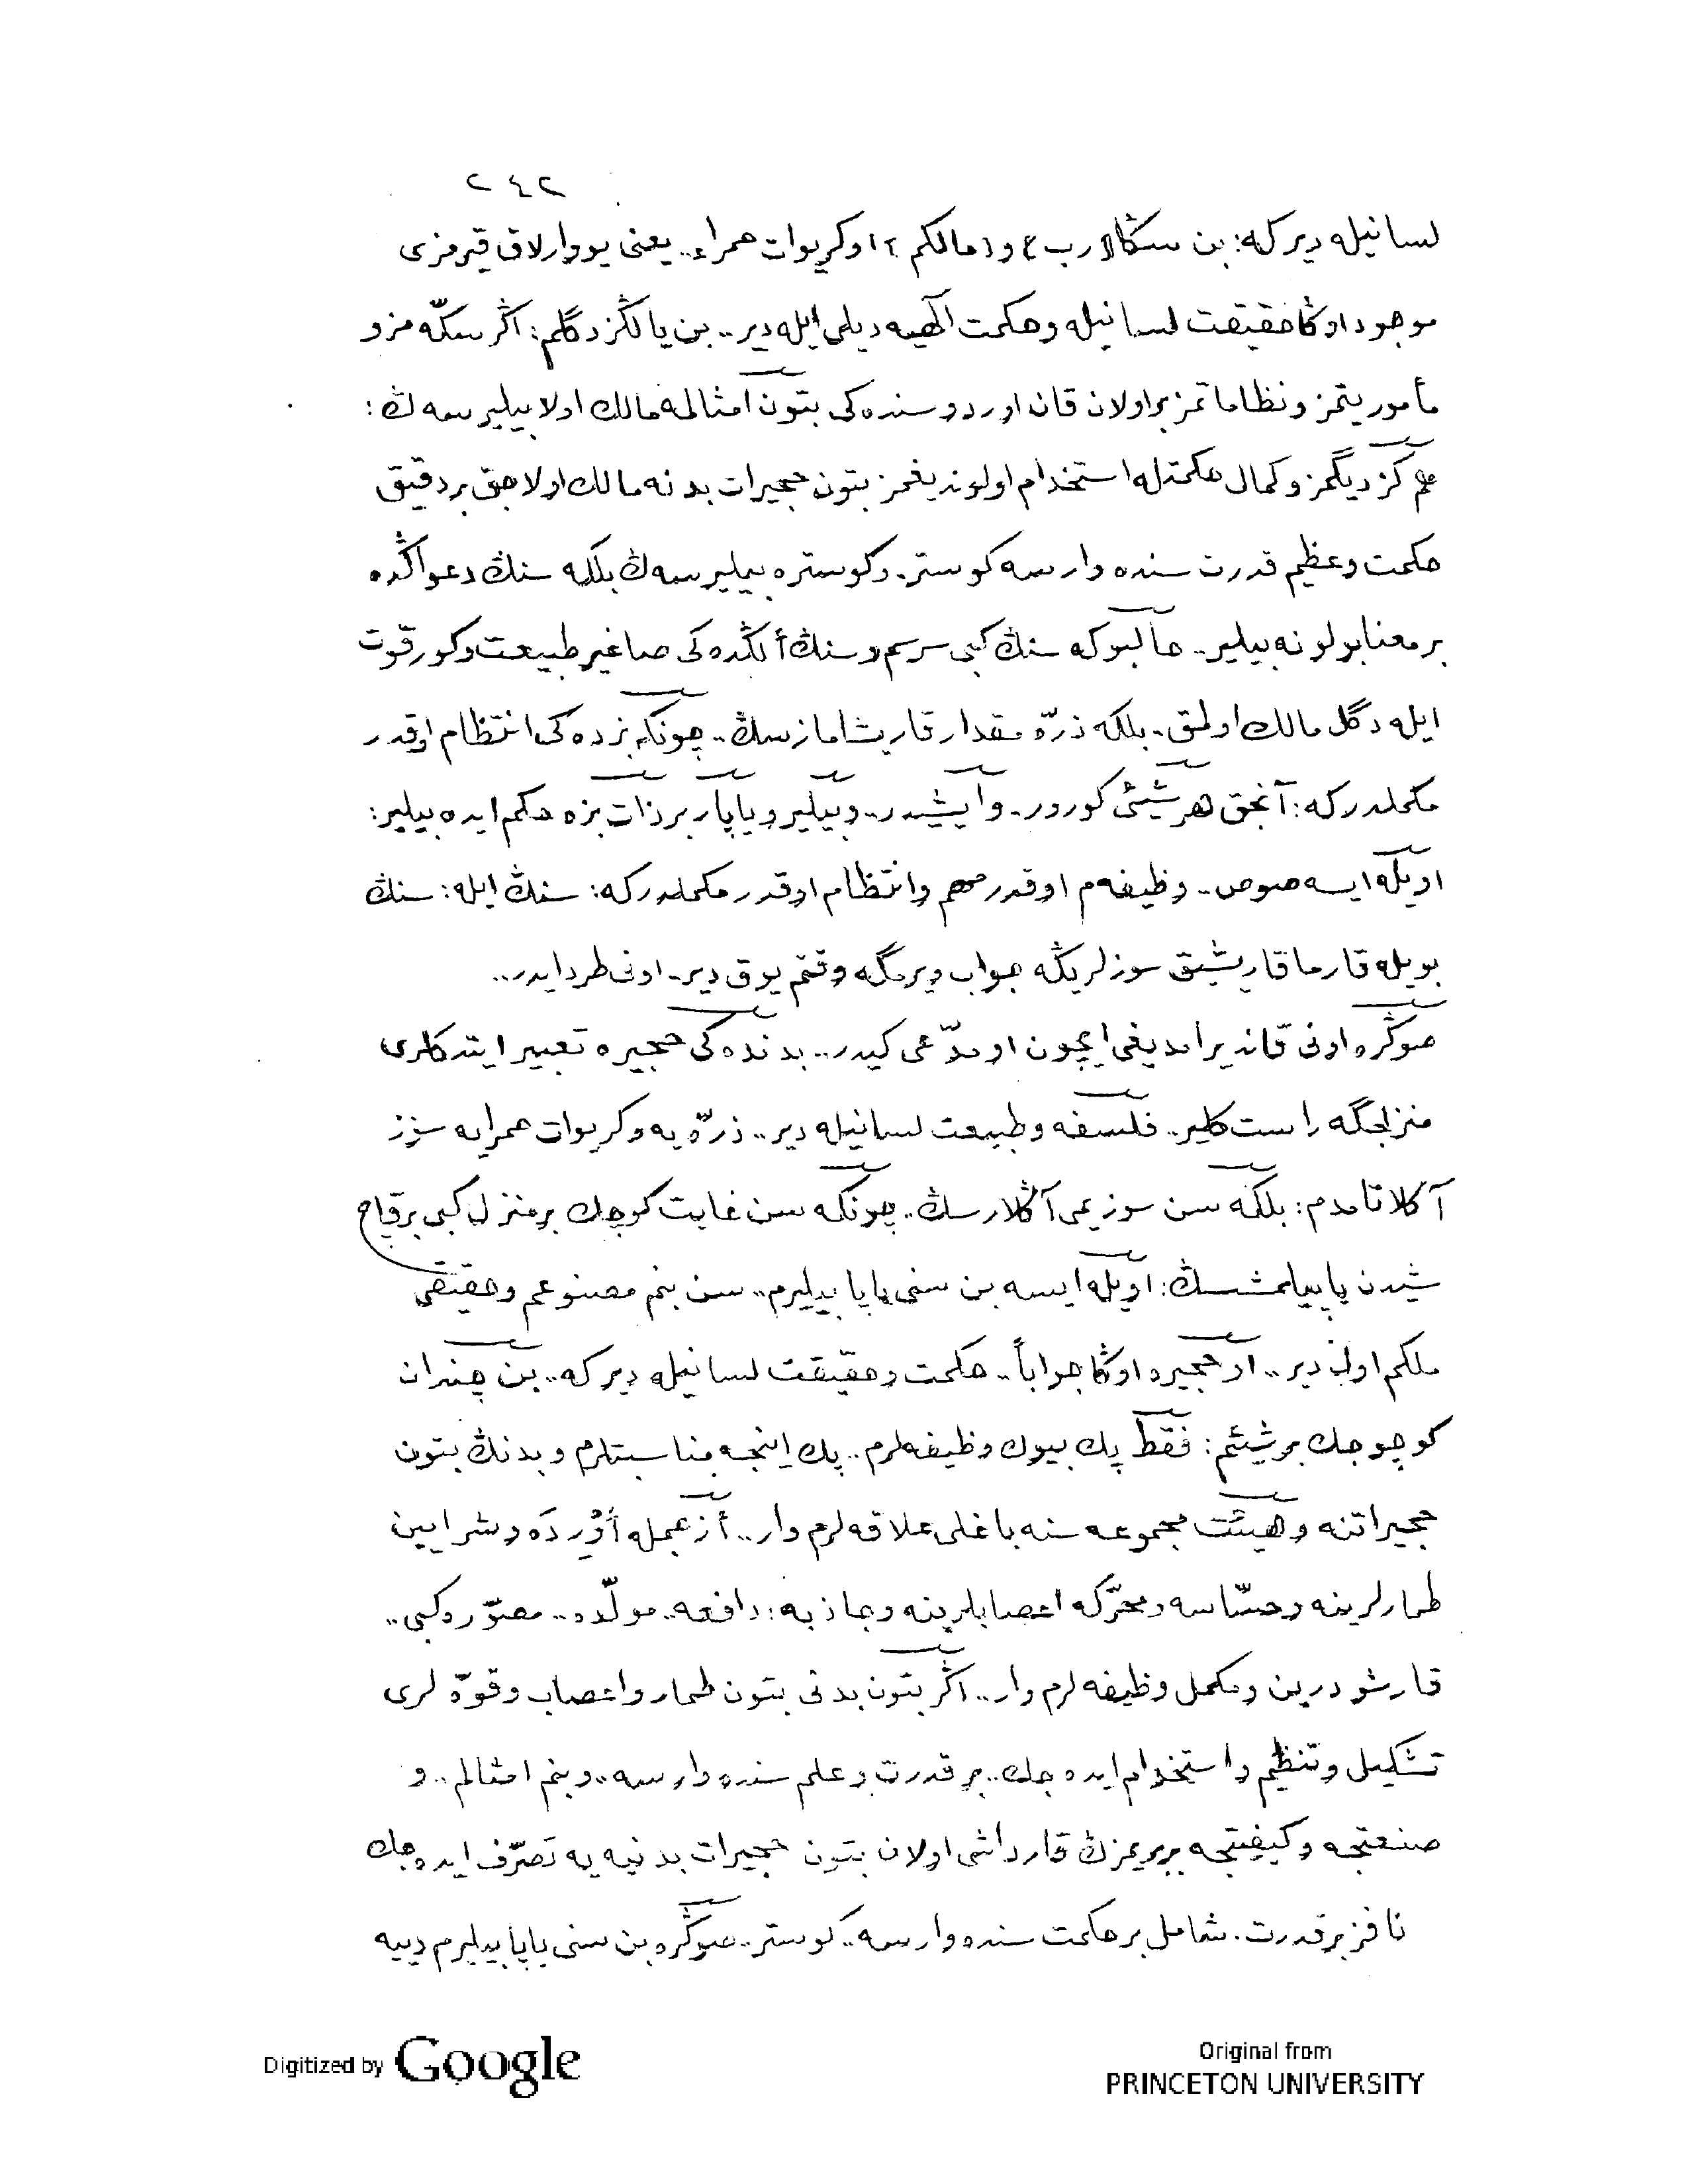 ٢٤٢
لسانيله دير كه: بن سڭا (رب) و (مالكم) او كريوات حمراء.. يعنى يووارلاق قيرمزى
موجود اوڭا حقيقت لسانيله و حكمت الٓهيه ديلى ايله دير.. بن يالڭز دگلم: اگر سكّه مز و
مأموريتمز و نظاماتمز بر اولان قان اوردوسنده كى بتون امثالمه مالك اولا بيلير سه ڭ:
هم گزديگمز و كمال حكمتله استخدام اولونديغمز بتون حجيرات بدنه مالك اولا جق بر دقيق
حكمت و عظيم قدرت سنده وارسه گوستر. و گوستره بيلير سه ڭ بلكه سنڭ دعواڭده
بر معنا بولونه بيلير. حالبوكه سنڭ گبى سرسم و سنڭ ألڭده كى صاغير طبيعت و كور قوت
ايله دگل مالك اولمق.. بلكه ذرّه مقدار قاريشامازسڭ.. چونكه بزده كى انتظام اوقدر
مكملدر كه: آنجق هر شيئى گورور. و ايشيدر.. و بيلير و ياپار بر ذات بزه حكم ايده بيلير:
اويله ايسه صوص.. وظيفه م اوقدر مهم و انتظام اوقدر مكملدر كه: سنڭ ايله: سنڭ
بويله قارما قاريشيق سوزلريڭه جواب ويرمگه وقتم يوق دير. اونى طرد ايدر..
صوڭره اونى قانديرامديغى ايچون او مدّعى گيدر.. بدنده كى حجيره تعبير ايتدكلرى
منزلجگه راست گلير.. فلسفه و طبيعت لسانيله دير.. ذرّه يه و كريوات حمرايه سوز
آڭلاتامدم: بلكه سن سوزيمى آڭلارسڭ.. چونكه سن غايت كوچك بر منزل گبى برقاچ
شيدن ياپيلمشسڭ: اويله ايسه بن سنى ياپا بيليرم.. سن بنم مصنوعم و حقيقى
ملكم اول دير.. او حجيره اوڭا جواباً.. حكمت و حقيقت لسانيله دير كه.. بن چندان
كوچوجك بر شيئم: فقط پك بيوك وظيفه لرم.. پك اينجه مناسبتلرم و بدنڭ بتون
حجيراتنه و هيئت مجموعه سنه باغلى علاقه لرم وار.. أزجمله أَوْرِدَه و شرايين
طمارلرينه و حسّاسه و محرّكه اعصابلرينه و جاذبه: دافعه.. مولّده.. مصوّره گبى..
قارشو درين و مكمل وظيفه لرم وار.. اگر بتون بدنى بتون طمار و اعصاب و قوّه لرى
تشكيل و تنظيم و استخدام ايده جك.. بر قدرت و علم سنده وارسه.. و بنم امثالم.. و
صنعتجه و كيفيتجه بربريمزڭ قارداشى اولان بتون حجيرات بدنيه يه تصرّف ايده جك
نافذ بر قدرت. شامل بر حكمت سنده وارسه.. گوستر.. صوڭره بن سنى ياپا بيليرم دييه
Digitized by Google
Original from
PRINCETON UNIVERSITY